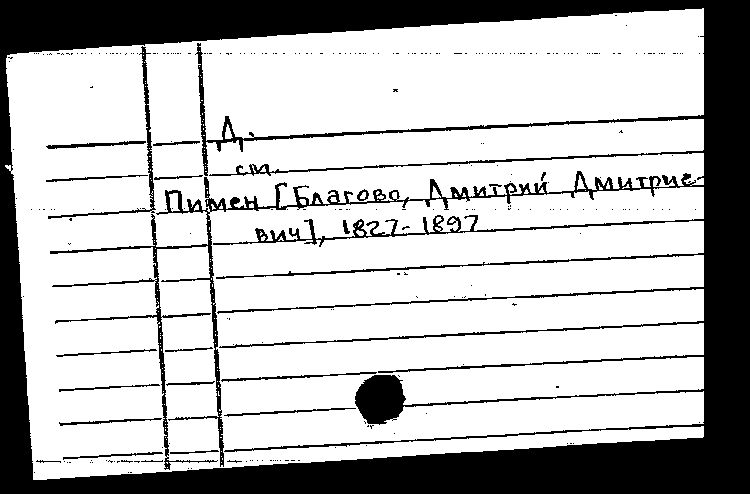 Д.
см.
Пимен [Благово, Дмитрий Дмитрие-
вич], 1827-1897